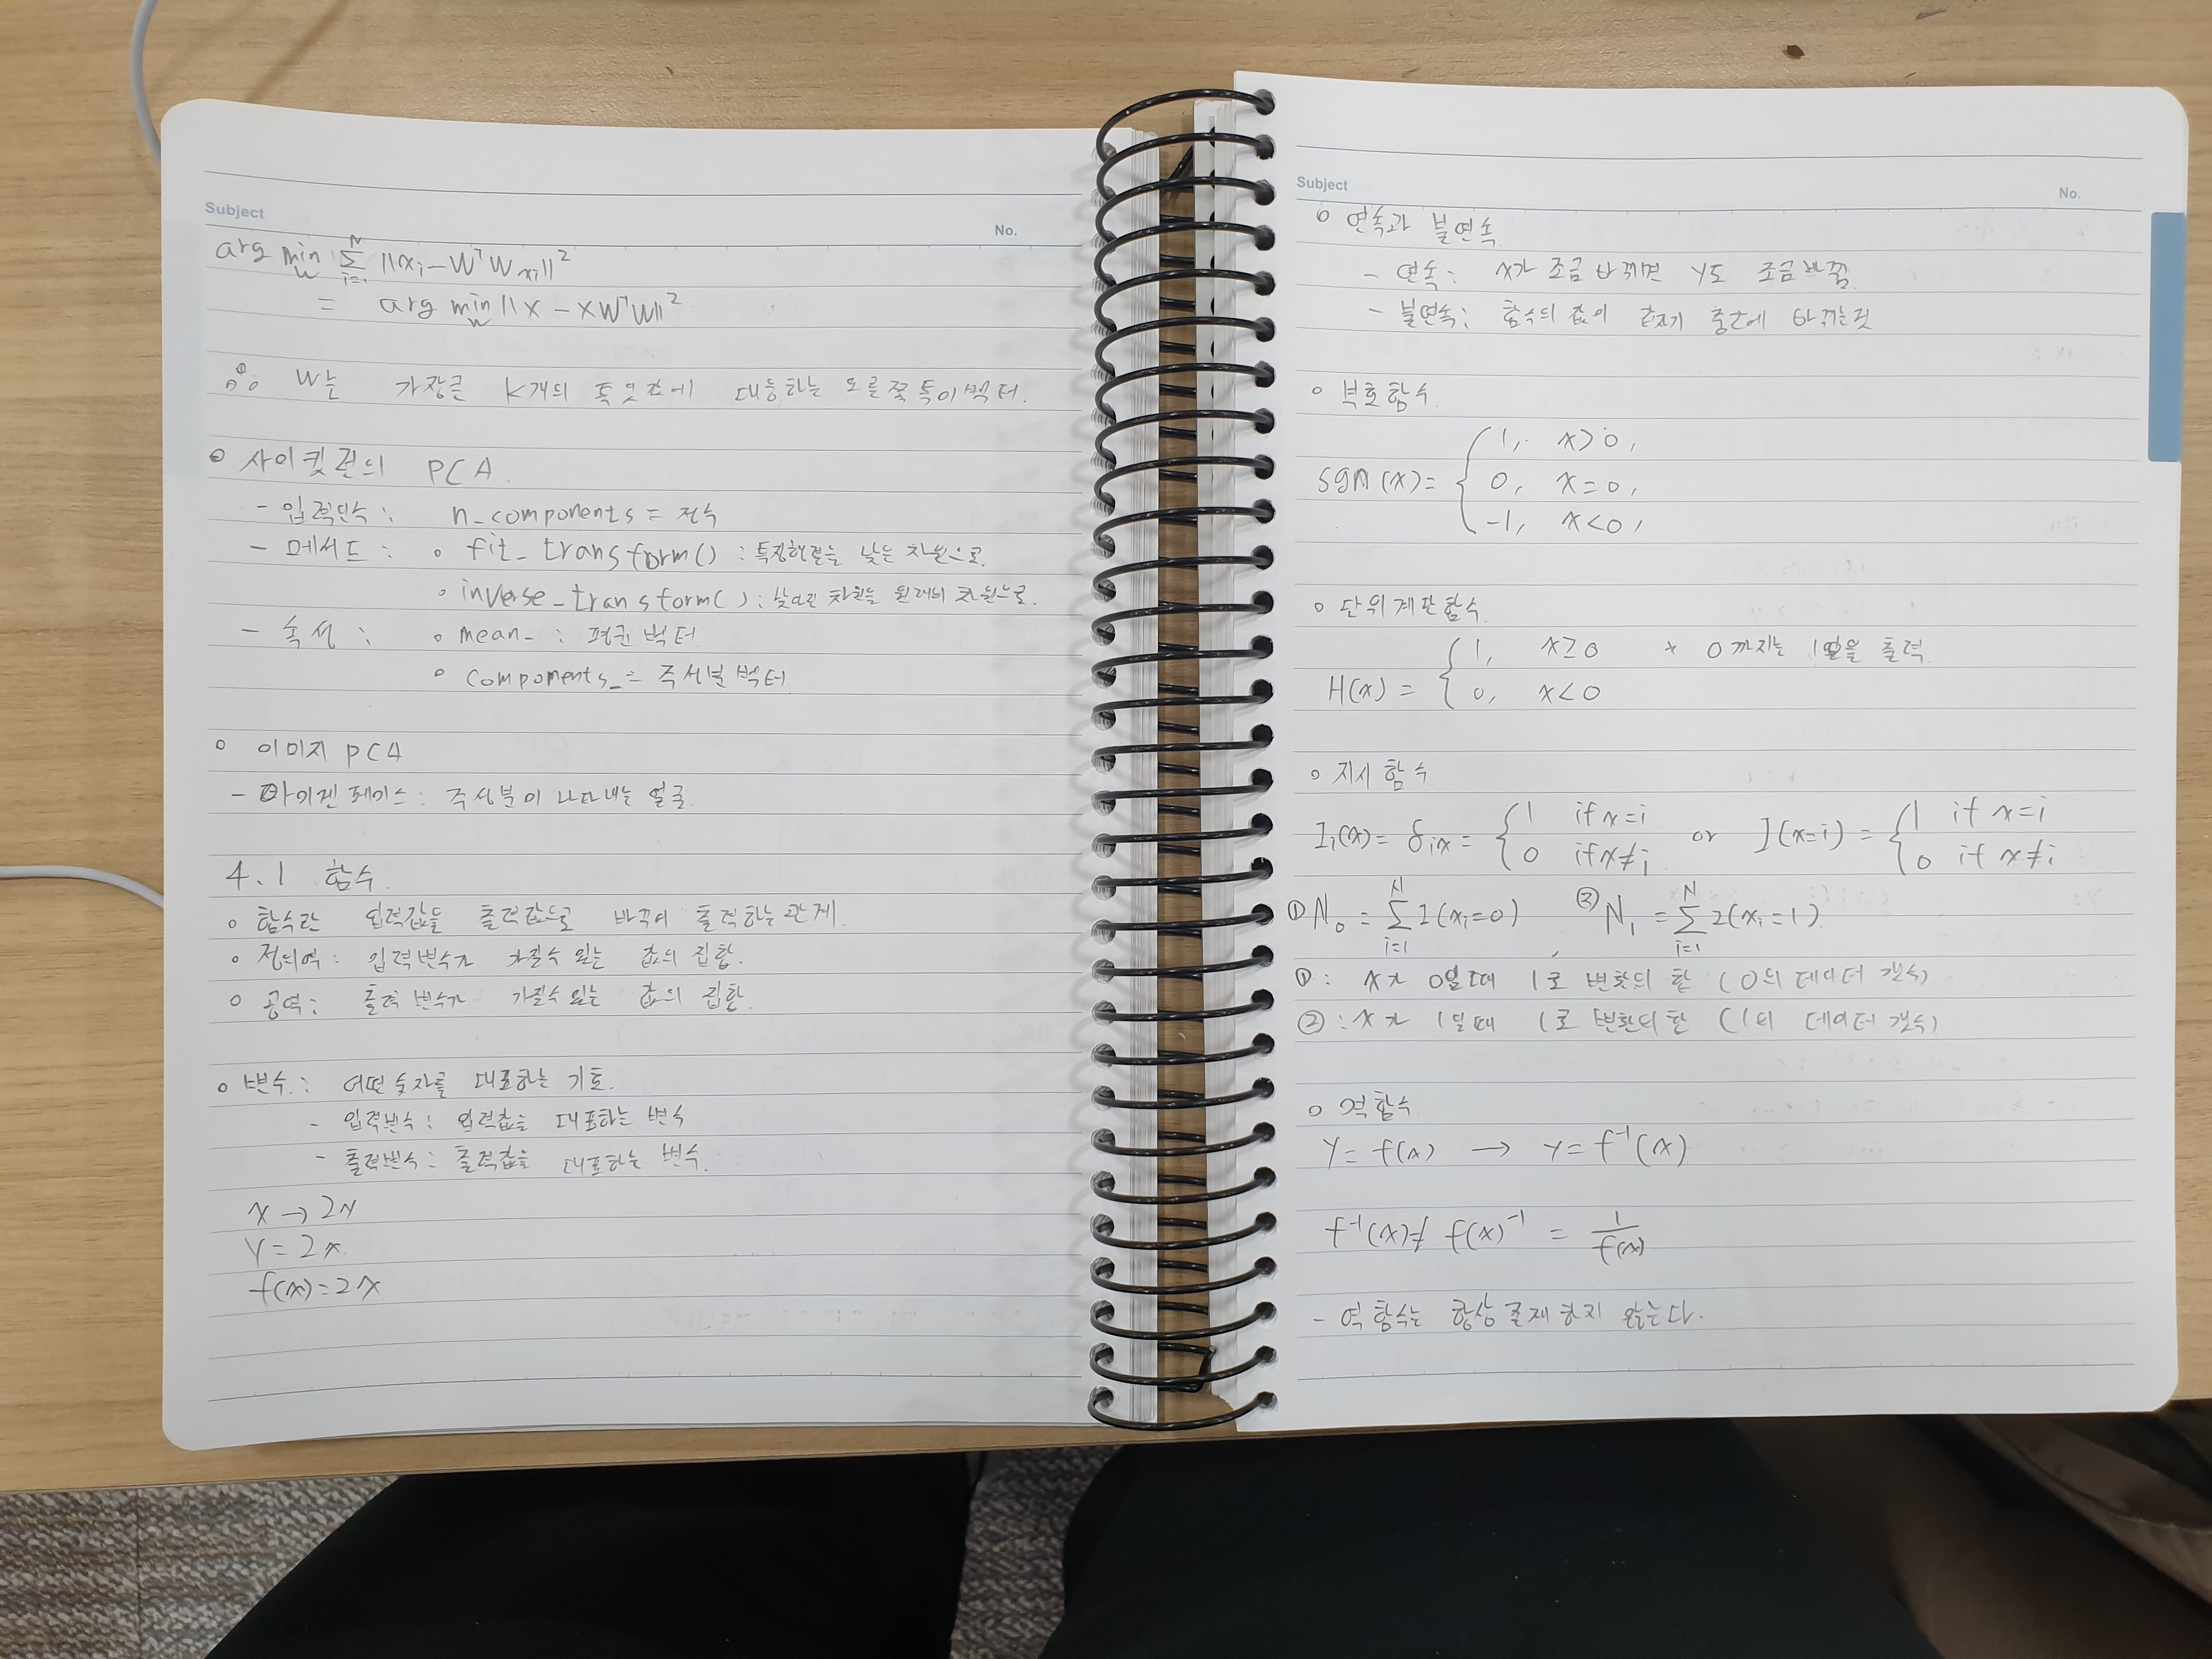 Subject
No.
arg min_W Σ_{i=1}^{N} ||x_i - W^T W x_i||^2
= arg min_W ||X - XW^T W||^2
∴ W는 가장큰 K개의 특잇값에 대응하는 오른쪽 특이벡터.
o 사이킷런의 PCA.
- 입력인수: n_components = 정수
- 메서드: o fit_transform() : 특징행렬을 낮은 차원으로.
o inverse_transform() : 낮아진 차원을 원래의 차원으로.
- 속성: o mean_ : 평균 벡터
o components_ = 주성분 벡터
o 이미지 PCA
- 아이겐페이스: 주성분이 나타내는 얼굴
4.1 함수.
o 함수란 입력값을 출력값으로 바꾸어 출력하는 관계.
o 정의역: 입력변수가 가질수 있는 값의 집합.
o 공역: 출력 변수가 가질수 있는 값의 집합.
o 변수: 어떤 숫자를 대표하는 기호.
- 입력변수: 입력값을 대표하는 변수
- 출력변수: 출력값을 대표하는 변수.
x → 2x
y = 2x.
f(x) = 2x
Subject
No.
o 연속과 불연속.
- 연속: x가 조금 바뀌면 y도 조금 바뀜.
- 불연속: 함수의 값이 갑자기 중간에 바뀌는 것.
o 부호함수.
sgn(x) = { 1, x>0,
0, x=0,
-1, x<0,
o 단위계단함수.
H(x) = { 1, x≥0 * 0까지는 1을 출력.
0, x<0
o 지시함수
I_i(x) = δ_{ix} = { 1 if x=i or I(x=i) = { 1 if x=i
0 if x≠i. 0 if x≠i
① N_0 = Σ_{i=1}^{N} I(x_i=0) , ② N_1 = Σ_{i=1}^{N} I(x_i=1).
①: x가 0일때 1로 변환의 합 (0의 데이터 갯수)
②: x가 1일때 1로 변환의 합 (1의 데이터 갯수)
o 역함수.
y = f(x) → y = f^{-1}(x)
f^{-1}(x) ≠ f(x)^{-1} = 1/f(x)
- 역함수는 항상 존재하지 않는다.